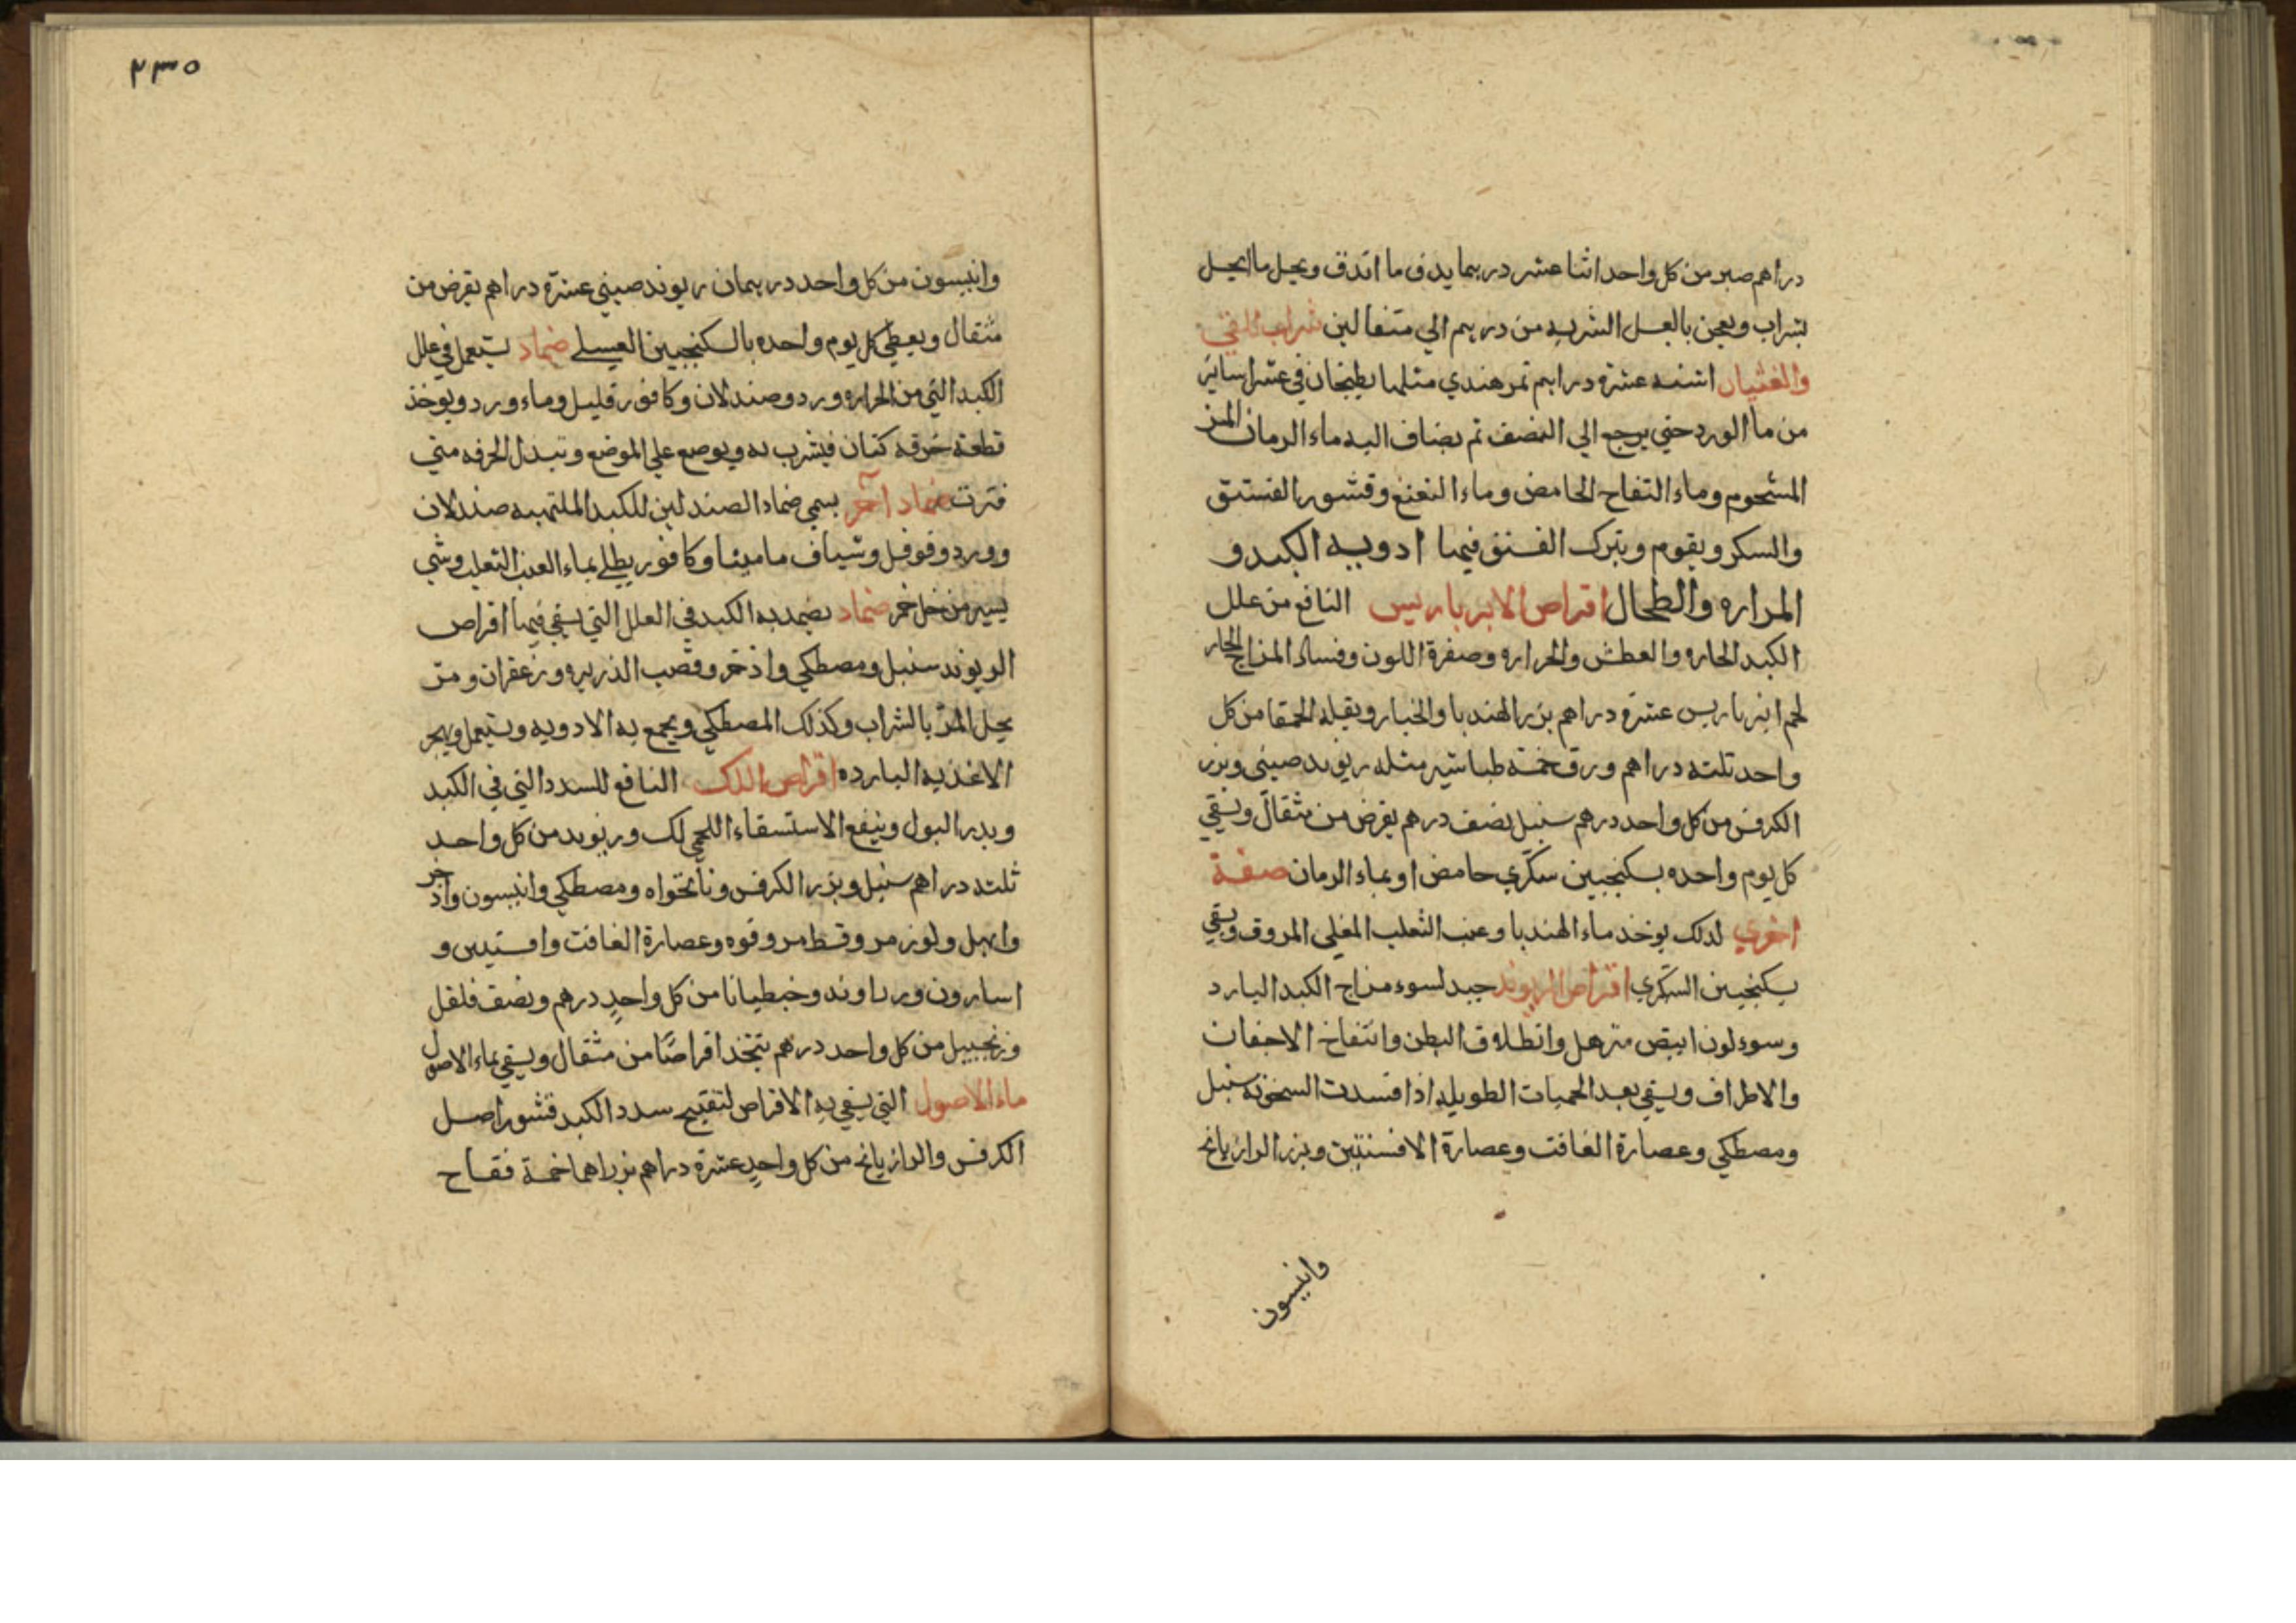 دراهم صبر من كل واحد اثنا عشر درهما يدق ما اندق ويحل ما انحل
بشراب ويعجن بالعسل الشربه من درهم الي مثقالين شراب للقي
والغثيان اشنه عشرة دراهم تمر هندي مثلها يطبخان في عشر اساتير
من ما الورد حتي يرجع الي النصف ثم يضاف اليه ماء الرمان المز
المشحوم وماء التفاح الحامض وماء النعنع وقشور الفستق
والسكر ويقوم ويترك الفستق فيها ادويه الكبد و
المراره والطحال اقراص الابرباريس النافع من علل
الكبد الحاره والعطش والحراره وصفرة اللون وفساد المزاج الحار
لحم انبرباريس عشرة دراهم بزر الهندبا والخيار وبقله الحمقا من كل
واحد ثلثه دراهم ورق خمسة طباشير مثله ريوند صيني وبزر
الكرفس من كل واحد درهم سنبل نصف درهم يقرض من مثقال ويسقي
كل يوم واحده بسكنجبين سكري حامض او بماء الرمان صفة
اخري لذلك يوخذ ماء الهندبا وعنب الثعلب المغلي المروق ويسقي
بسكنجبين السكري اقراص الريوند جيد لسوء مزاج الكبد البارد
وسوء لون ابيض مترهل وانطلاق البطن وانتفاخ الاجفان
والاطراف ويسقي بعد الحميات الطويله اذا فسدت السحنه سنبل
ومصطكي وعصارة الغافت وعصارة الافسنتين وبزر الرازيانج
وانيسون
٢٣٥
وانيسون من كل واحد درهمان ريوند صيني عشرة دراهم يقرض من
مثقال ويعطي كل يوم واحده بالسكنجبين العسلي ضماد يستعمل في علل
الكبد التي من الحراره ورد وصندلان وكافور قليل وماء ورد ويوخذ
قطعة خرقه كتان فيشرب به ويوضع علي الموضع وتبدل الخرقه متي
فترت ضماد آخر يسمي ضماد الصندلين للكبد الملتهبه صندلان
وورد وفوفل وشياف ماميثا وكافور يطلي بماء العنب الثعلب وشي
يسير من خل خمر ضماد يضمد به الكبد في العلل التي يسقي فيها اقراص
الريوند سنبل ومصطكي واذخر وقصب الذريره وزعفران ومر
يحل المر بالشراب وكذلك المصطكي ويجمع به الادويه ويستعمل ويهجر
الاغذيه البارده اقراص اللك النافع للسدد التي في الكبد
ويدر البول وينفع الاستسقاء اللحمي لك وريوند من كل واحد
ثلثه دراهم سنبل وبزر الكرفس ونانخواه ومصطكي وانيسون واذخر
وابهل ولوز مر وقسط مر وفوه وعصارة الغافت وافسنتين و
اسارون وزراوند وجنطيانا من كل واحدٍ درهم ونصف فلفل
وزنجبيل من كل واحد درهم يتخذ اقراصًا من مثقال ويسقي بماء الاصول
ماء الاصول التي يسقي به الاقراص لتفتيح سدد الكبد قشور اصل
الكرفس والرازيانج من كل واحدٍ عشرة دراهم بزراهما خمسة فقاح